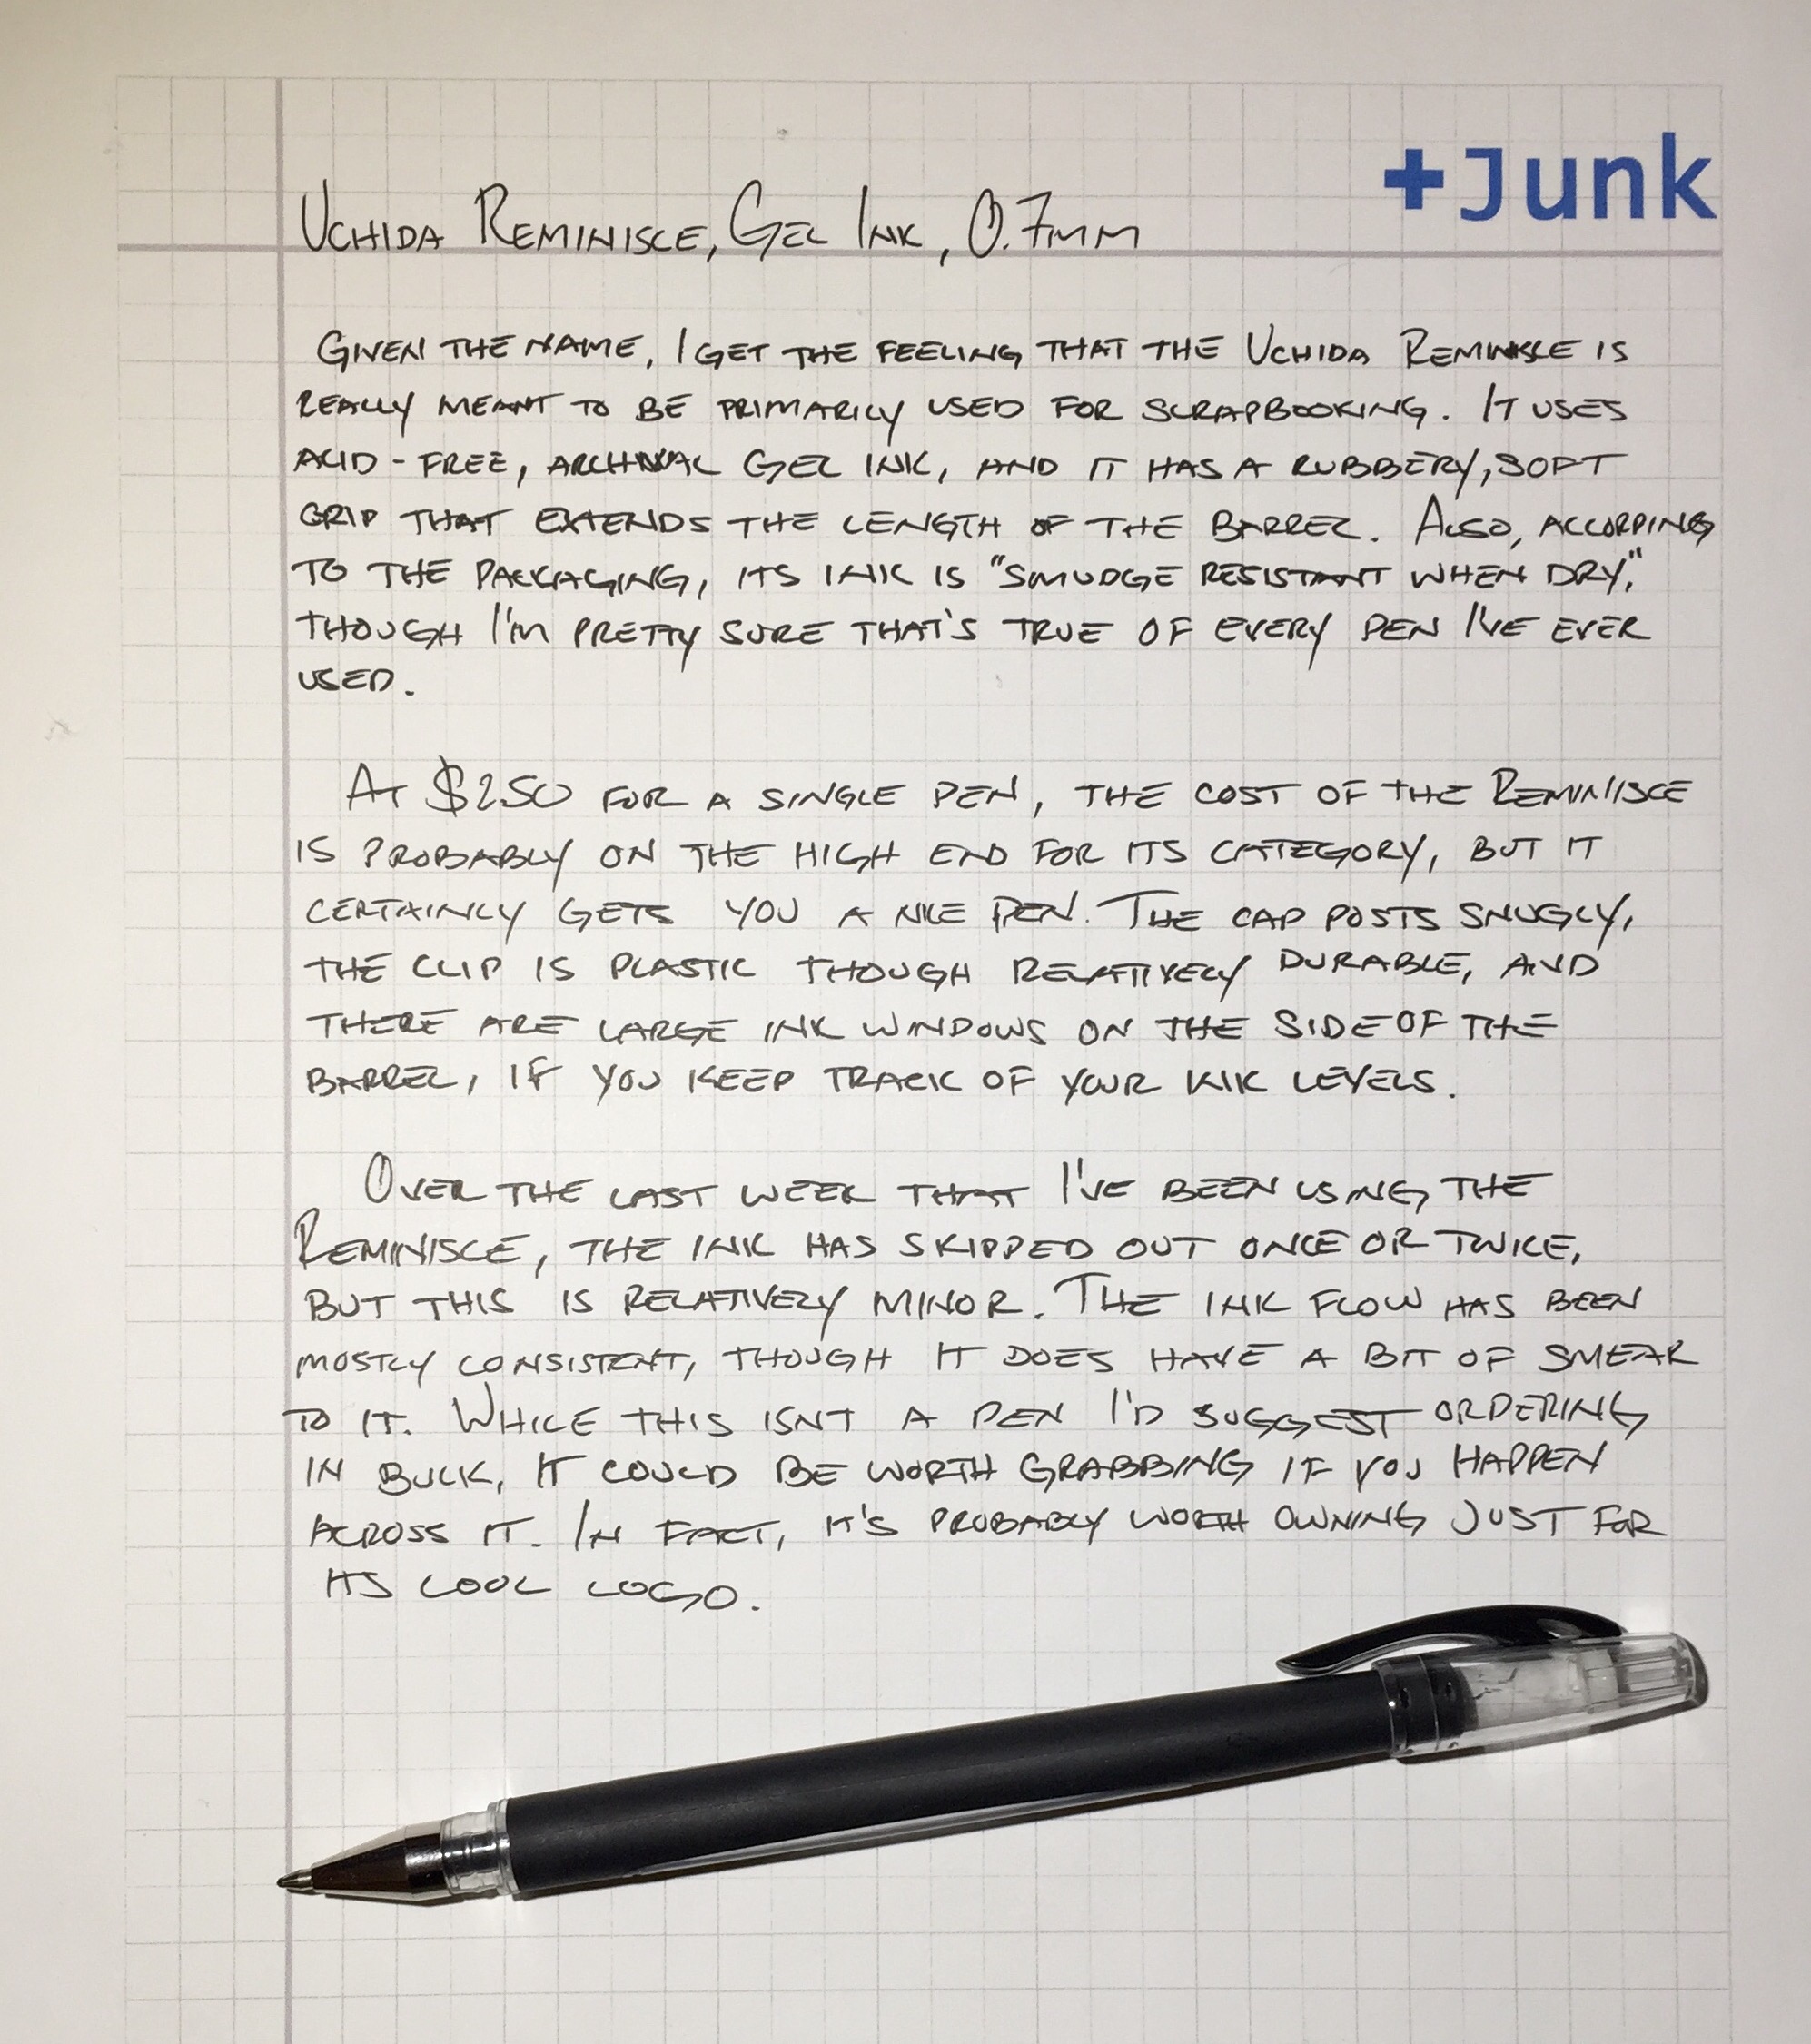 +Junk
UCHIDA REMINISCE, GEL INK, 0.7MM
GIVEN THE NAME, I GET THE FEELING THAT THE UCHIDA REMINISCE IS
REALLY MEANT TO BE PRIMARILY USED FOR SCRAPBOOKING. IT USES
ACID-FREE, ARCHIVAL GEL INK, AND IT HAS A RUBBERY, SOFT
GRIP THAT EXTENDS THE LENGTH OF THE BARREL. ALSO, ACCORDING
TO THE PACKAGING, ITS INK IS "SMUDGE RESISTANT WHEN DRY,"
THOUGH I'M PRETTY SURE THAT'S TRUE OF EVERY PEN I'VE EVER
USED.
AT $250 FOR A SINGLE PEN, THE COST OF THE REMINISCE
IS PROBABLY ON THE HIGH END FOR ITS CATEGORY, BUT IT
CERTAINLY GETS YOU A NICE PEN. THE CAP POSTS SNUGLY,
THE CLIP IS PLASTIC THOUGH RELATIVELY DURABLE, AND
THERE ARE LARGE INK WINDOWS ON THE SIDE OF THE
BARREL, IF YOU KEEP TRACK OF YOUR INK LEVELS.
OVER THE LAST WEEK THAT I'VE BEEN USING THE
REMINISCE, THE INK HAS SKIPPED OUT ONCE OR TWICE,
BUT THIS IS RELATIVELY MINOR. THE INK FLOW HAS BEEN
MOSTLY CONSISTENT, THOUGH IT DOES HAVE A BIT OF SMEAR
TO IT. WHILE THIS ISNT A PEN I'D SUGGEST ORDERING
IN BULK, IT COULD BE WORTH GRABBING IF YOU HAPPEN
ACROSS IT. IN FACT, IT'S PROBABLY WORTH OWNING JUST FOR
ITS COOL LOGO.